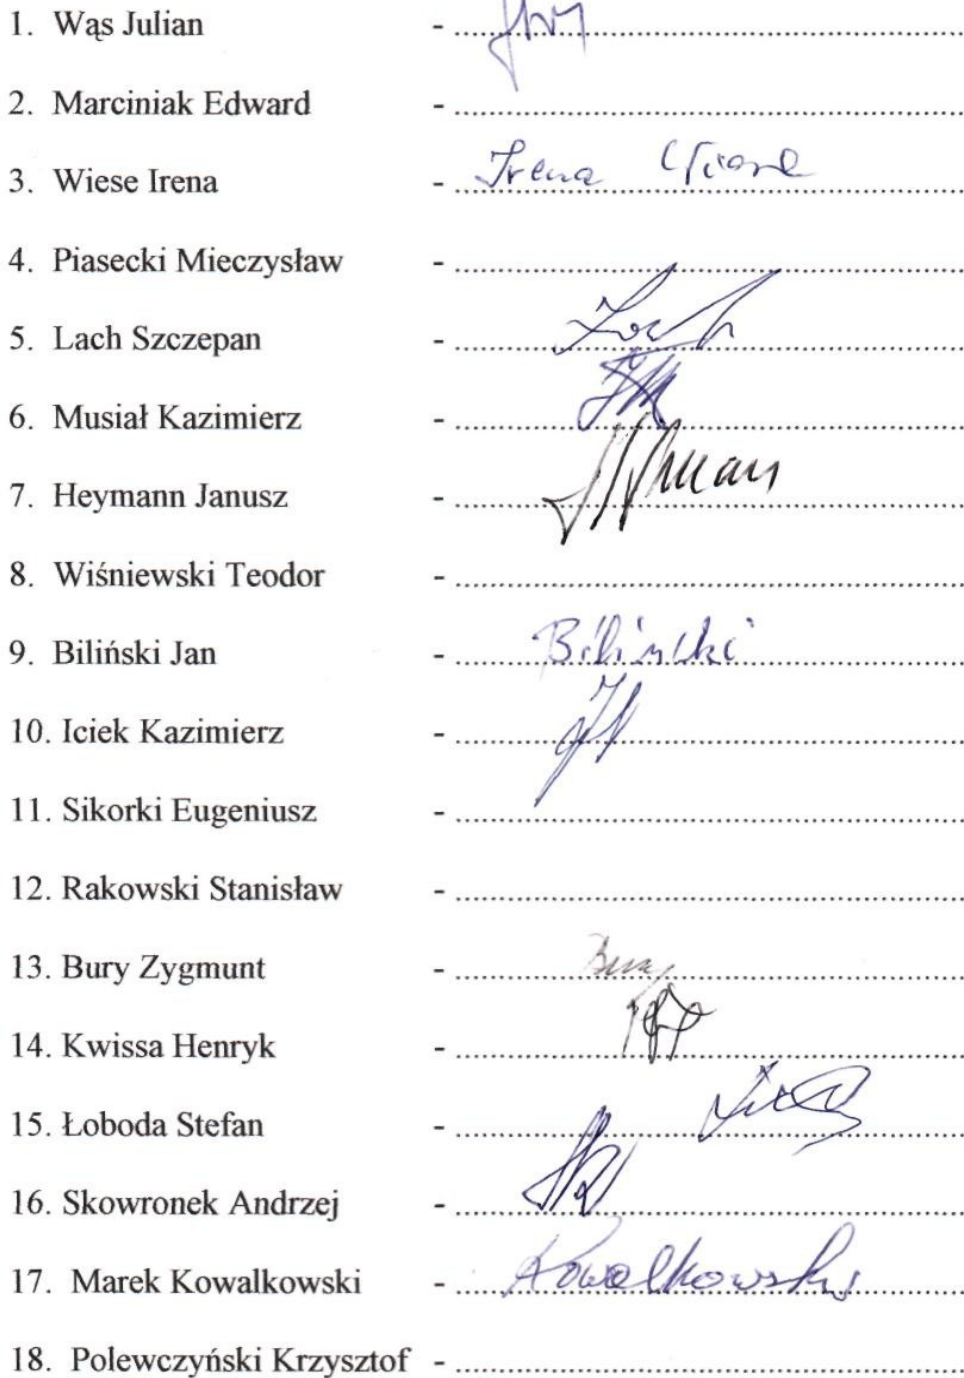 1. Wąs Julian - ........................................
2. Marciniak Edward - ........................................
3. Wiese Irena - ........ Irena ........................................
4. Piasecki Mieczysław - ........................................
5. Lach Szczepan - ........................................
6. Musiał Kazimierz - ........................................
7. Heymann Janusz - ........................................
8. Wiśniewski Teodor - ........................................
9. Biliński Jan - ........ Biliński ........................................
10. Iciek Kazimierz - ........................................
11. Sikorki Eugeniusz - ........................................
12. Rakowski Stanisław - ........................................
13. Bury Zygmunt - ........ Bury ........................................
14. Kwissa Henryk - ........................................
15. Łoboda Stefan - ........................................
16. Skowronek Andrzej - ........................................
17. Marek Kowalkowski - ........ Kowalkowski ........................................
18. Polewczyński Krzysztof - ........................................